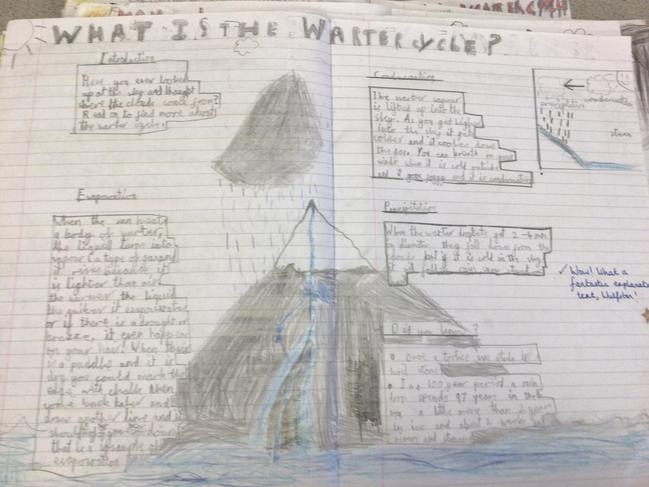 WHAT IS THE WARTER CYCLE?
Introduction
Have you ever looked
up at the sky and thought
where the clouds come from?
Read on to find more about
the warter cycle
Evaporation
When the sun heats
a body of warter,
the liquid turns into
vapour (a type of
it rises because it
is lighter than air
the warmer the liquid
the quicker it evaporates
or if there is a draught or
breeze, it even happens
on your hair! When there
is a puddle and it is
dry you could mark the
edge with chalk then
come back later and
draw another line and it
should
that is
evaporation
Condensation
The warter vapour
is lifted up into the
sky. As you get higher
into the sky it gets
colder and it cools down
the
when it is cold outside
and it goes foggy and it is condensation
precipitation
condensation
Precipitation
When the warter droplets get 2-6 mm
in diameter they fall down from the
clouds but if it is cold in the sky
it
✓ Wow! What a
fantastic explanation
text,
Did you know?
• Once a
hail
• In a 100 year period a
drop spends 97 years in the
sea a little more than
in ice and about 2 weeks in
rivers and